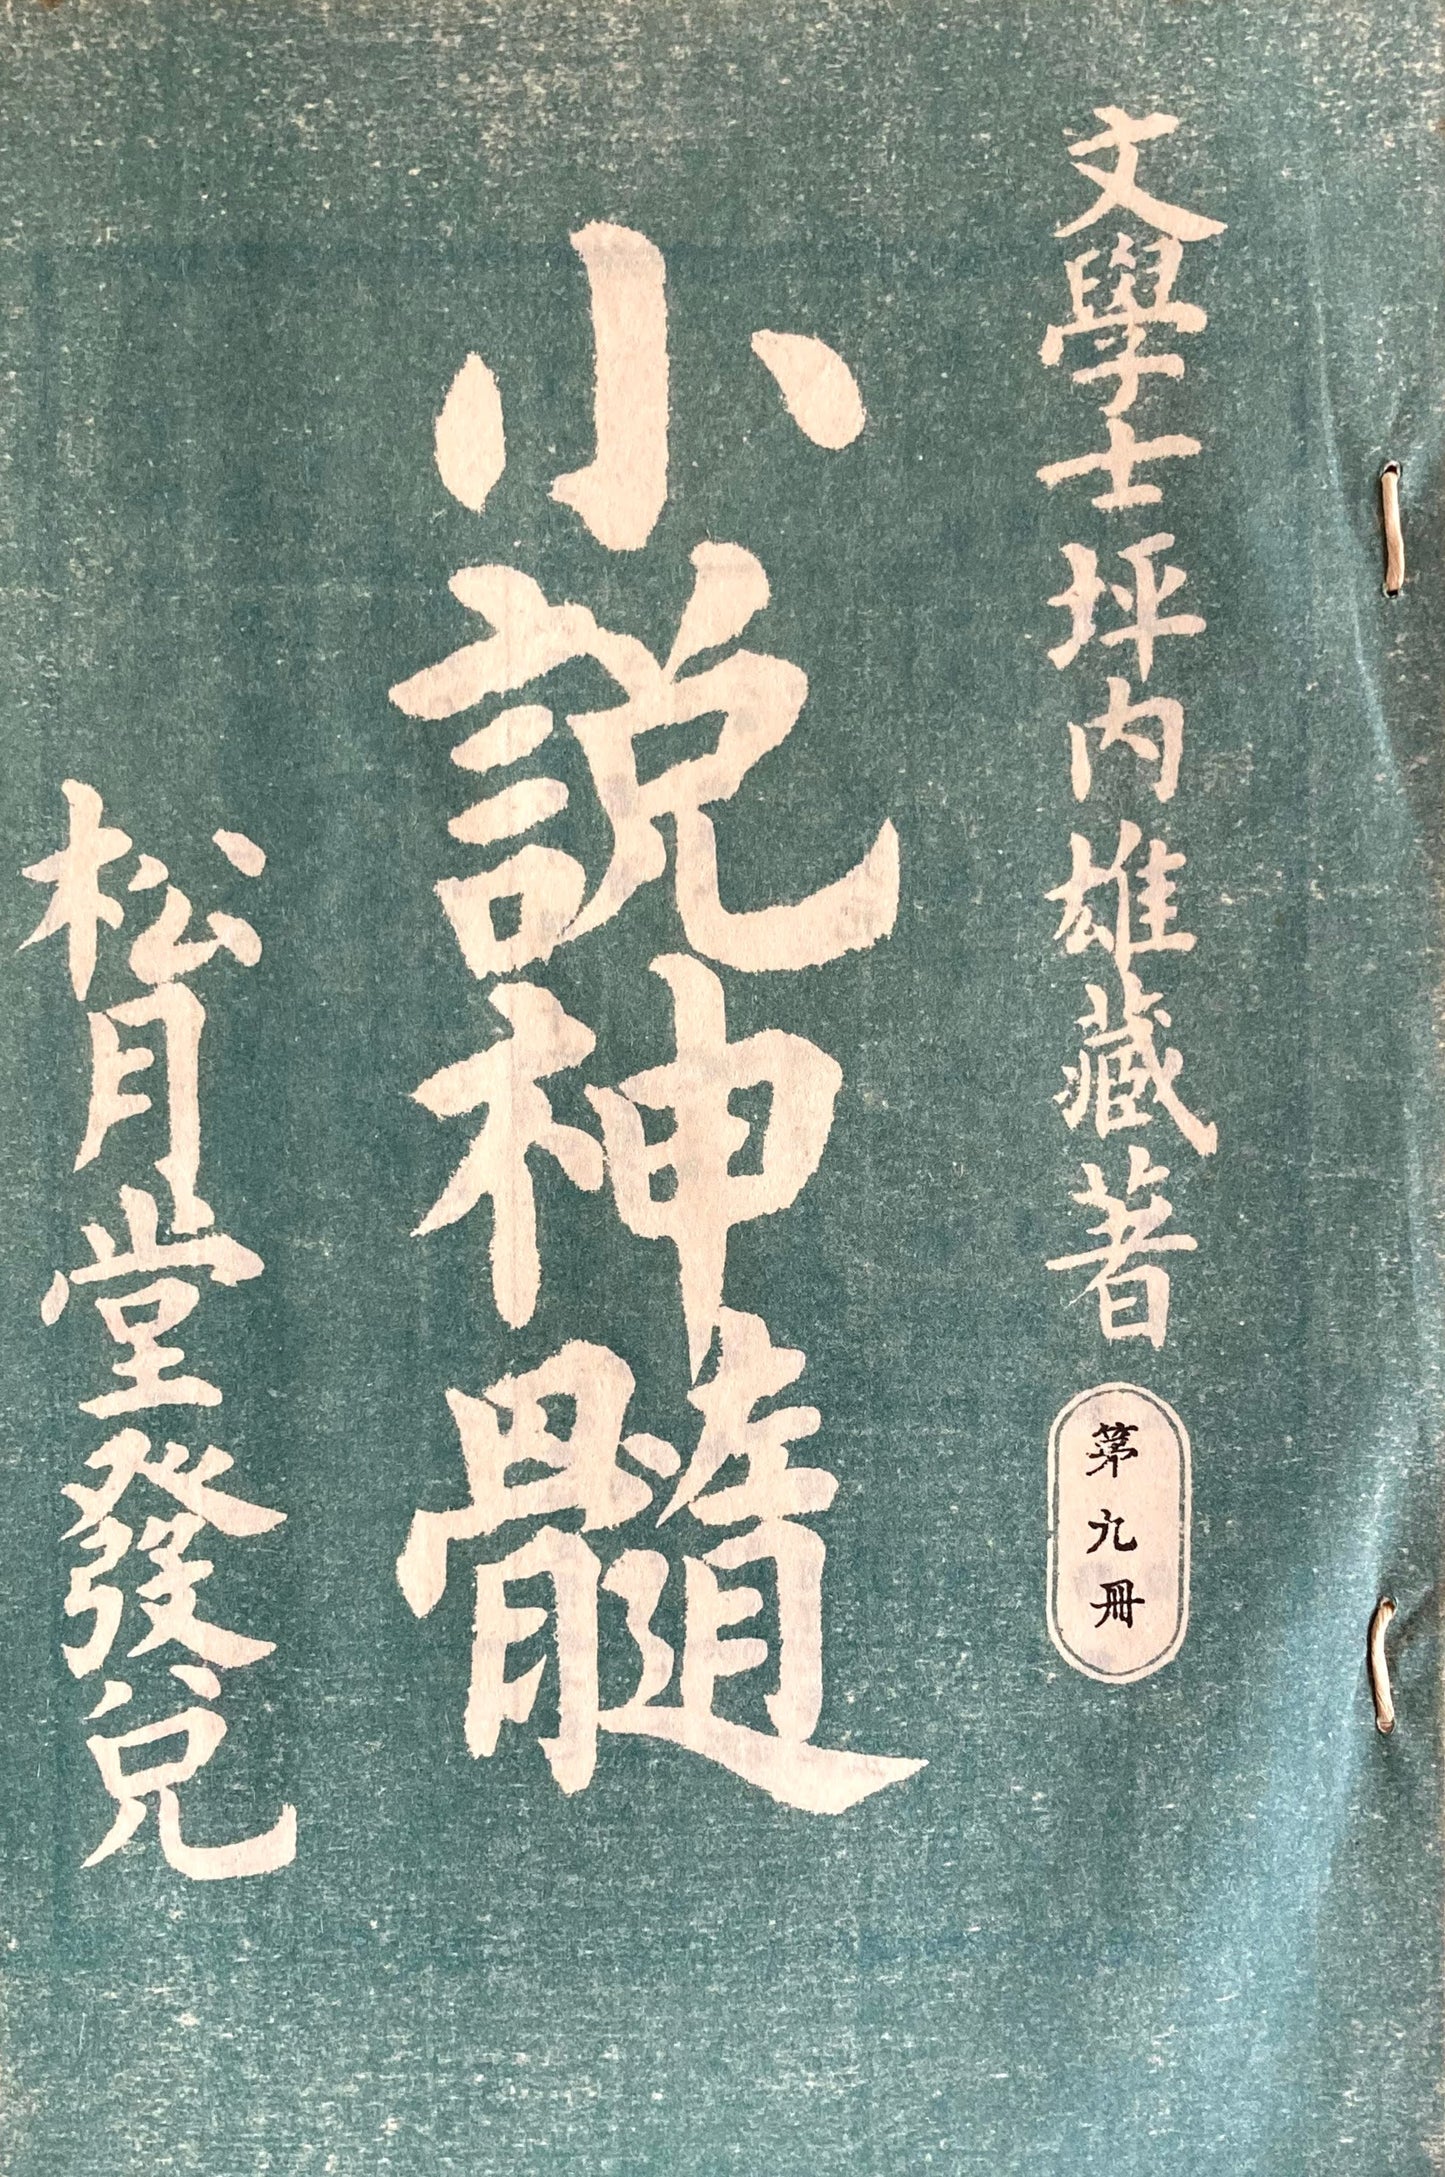 文學士坪内雄藏著
第九冊
小說神髓
松月堂發兌